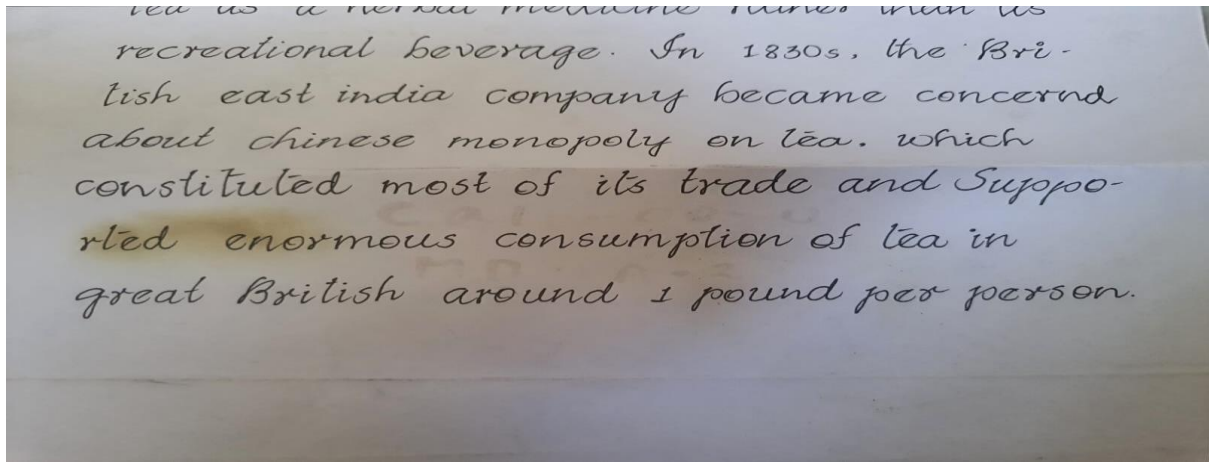 tea as a herbal medicine rather than as
recreational beverage. In 1830s, the Bri-
tish east india company became concernd
about chinese monopoly on tea. which
constituted most of its trade and Suppo-
rted enormous consumption of tea in
great British around 1 pound per person.